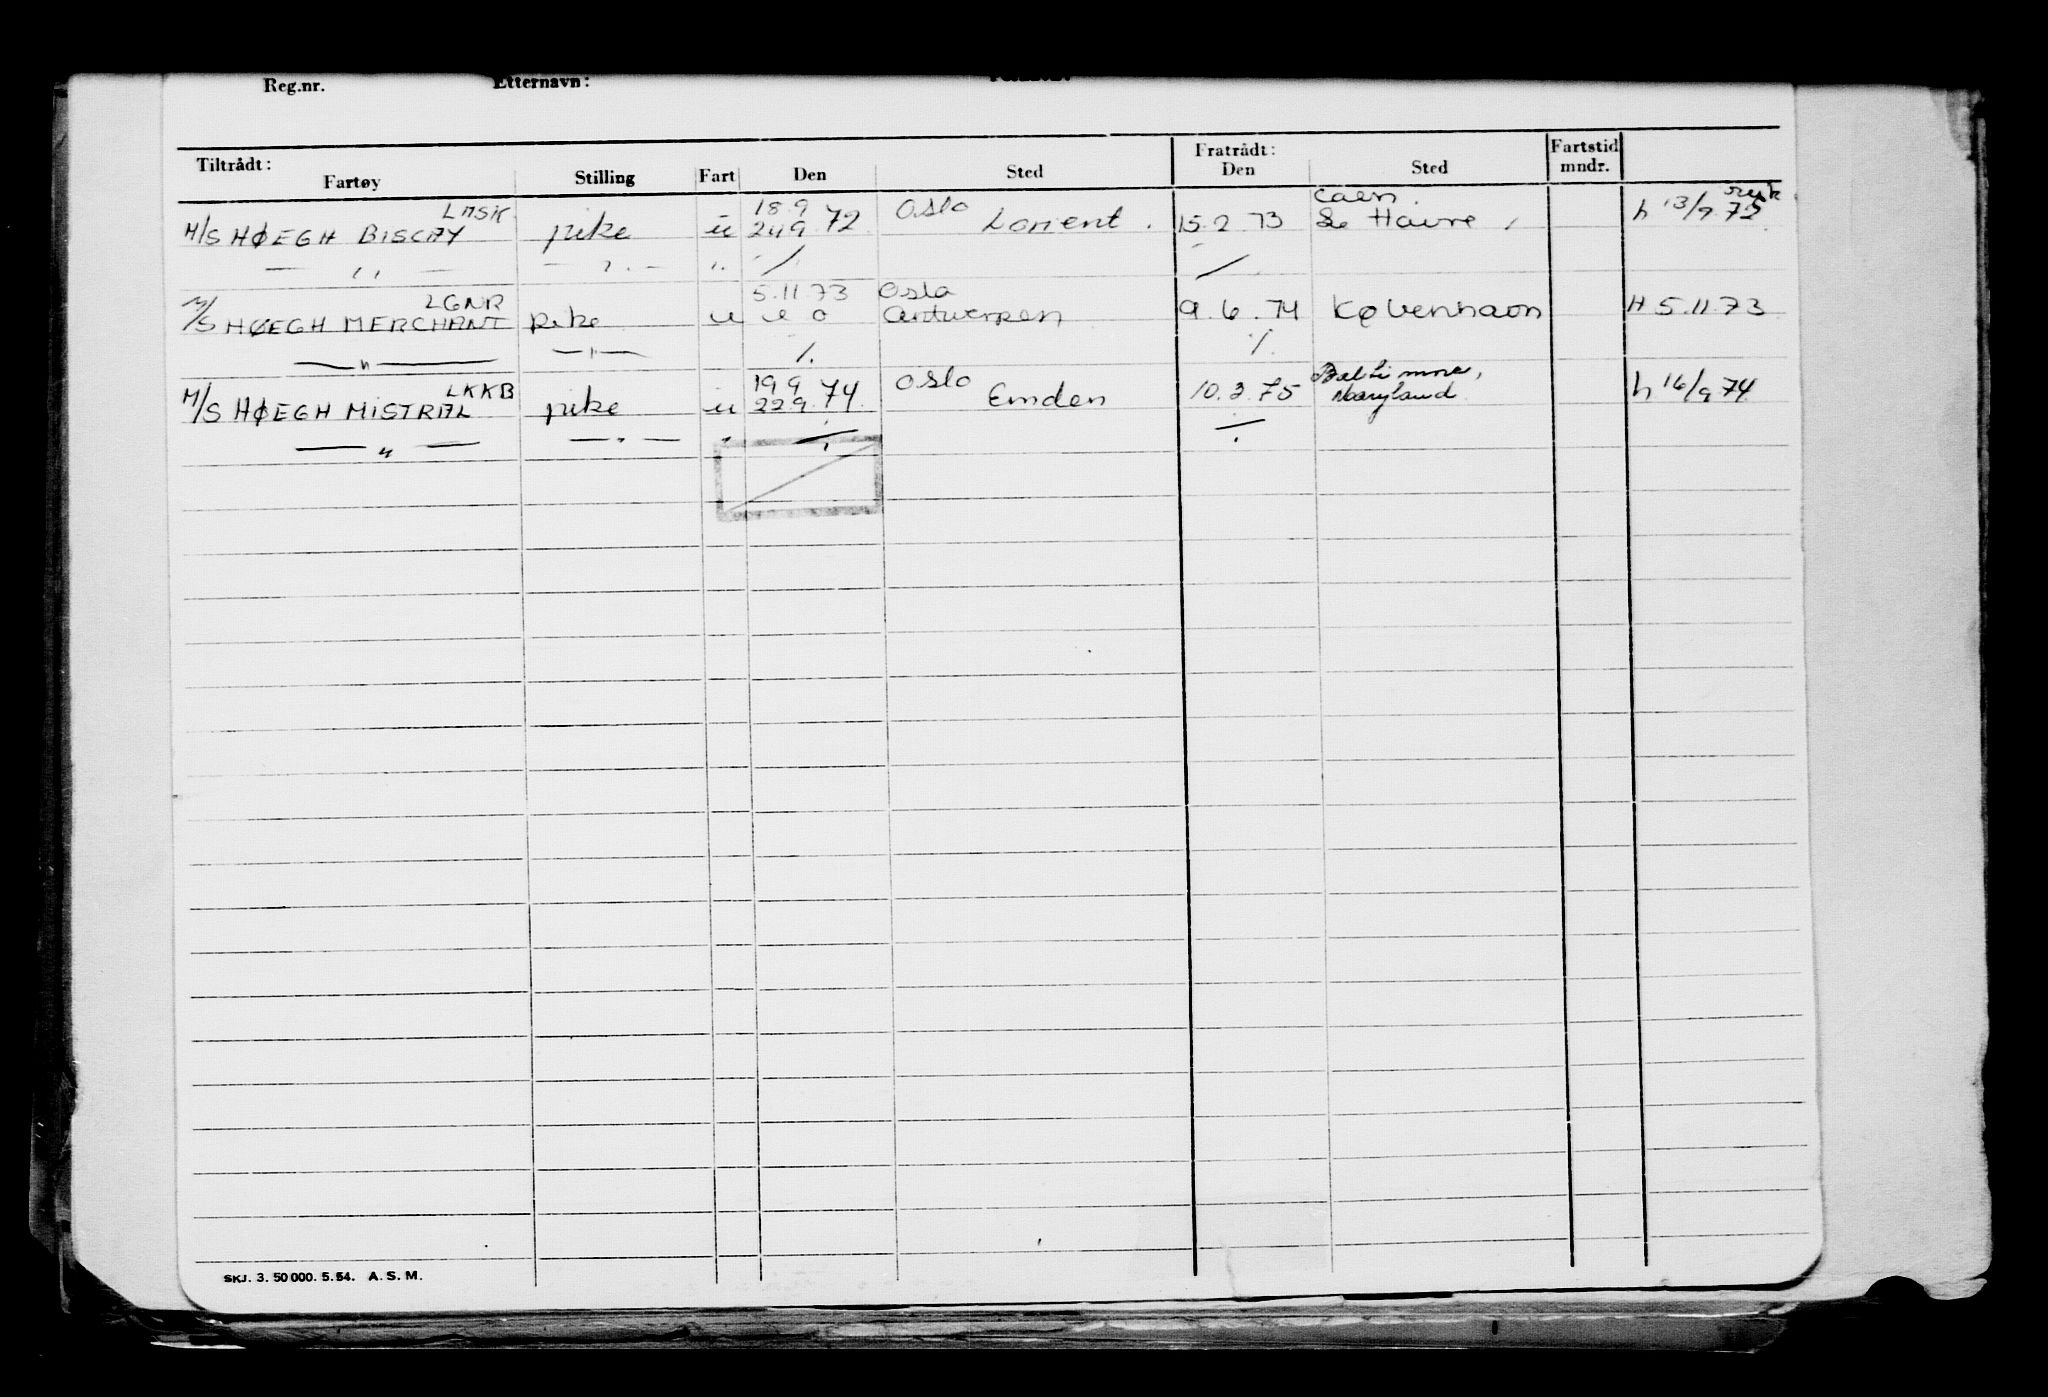 Reg.nr. Etternavn:
Tiltrådt: Fratrådt: Fartstid
Fartøy Stilling Fart Den Sted Den Sted mndr.
LMSK 18.9 Oslo Caen.
M/S HØEGH BISCAY pike u 24.9 72 Lorient. 15.2.73 Le Havre, h 13/9.72
— ,, — — ,, — ,, /. /.
LGNR 5.11.73 Oslo
M/S HØEGH MERCHANT pike u Antwerpen 9.6.74 København H 5.11.73
— " — — " — /. /.
LKKB 19.9 74 Oslo Baltimore,
M/S HØEGH MISTRAL pike u 22.9. Emden 10.3.75 Maryland h 16/9 74
— " — — " — "
SKJ. 3. 50 000. 5. 54. A. S. M.